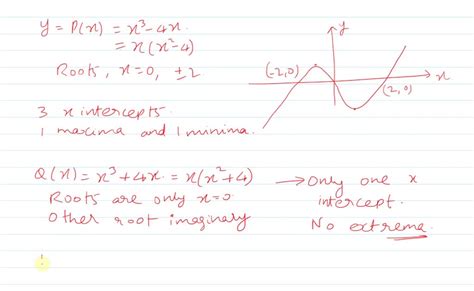 y = P(x) = x³-4x.
= x(x²-4)
Roots, x=0, ±2
3 x intercepts.
1 maxima and 1 minima.
y
(-2,0)
x
(2,0)
Q(x) = x³+4x = x(x²+4)
Roots are only x=0
Other root imaginary
→ Only one x
intercept.
No extrema.